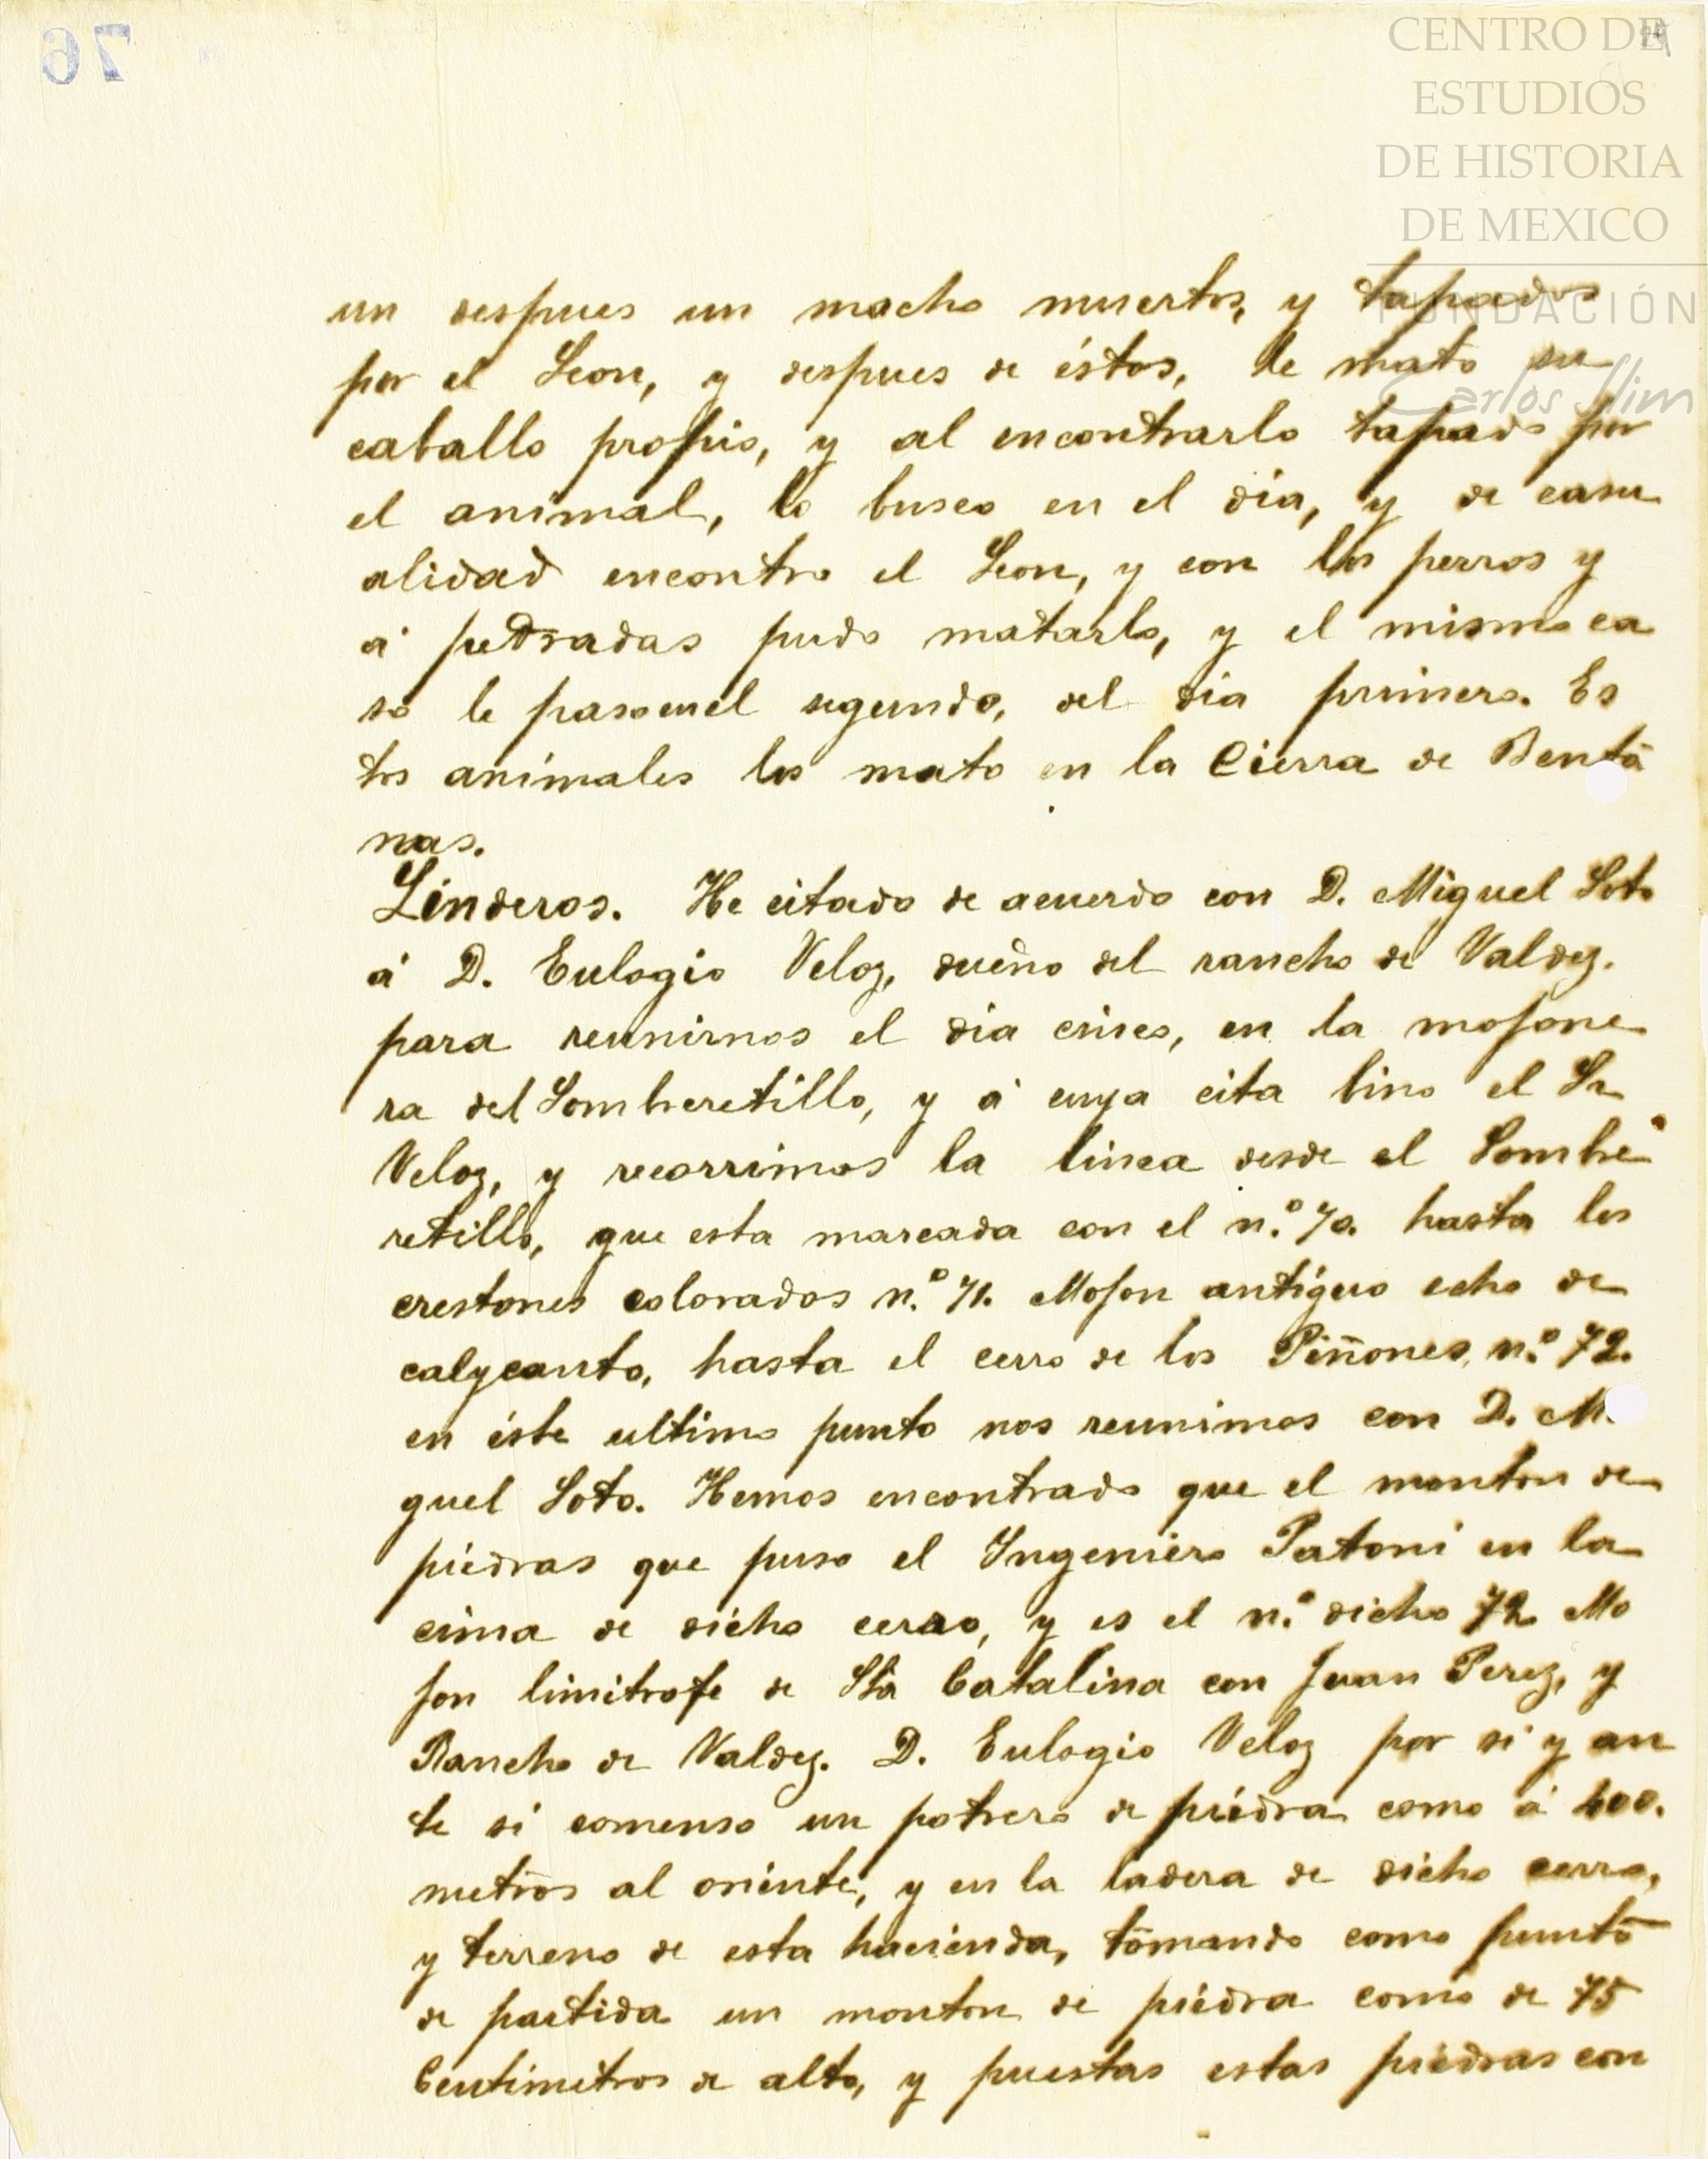 76
CENTRO DE
ESTUDIOS
DE HISTORIA
DE MEXICO
FUNDACIÓN
Carlos Slim
un despues un macho muertos, y tapados
por el Leon, y despues de éstos, le mato su
caballo propio, y al encontrarlo tapado por
el animal, lo busco en el dia, y de casu
alidad encontro el Leon, y con los perros y
á pedradas pudo matarlo, y el mismo ca
so le paso en el segundo, del dia primero. Es
tos animales los mato en la Cierra de Benta
nas.
Linderos. He citado de acuerdo con D. Miguel Soto
á D. Eulogio Veloz, dueño del rancho de Valdez.
para reunirnos el dia cinco, en la mojone
ra del Sombreretillo, y á cuya cita bino el Sr
Veloz, y recorrimos la linea desde el Sombre
retillo, que esta marcada con el n.º 70. hasta los
crestones colorados n.º 71. Mojon antiguo echo de
calycanto, hasta el cerro de los Piñones, n.º 72.
en éste ultimo punto nos reunimos con D. Mi
guel Soto. Hemos encontrado que el monton de
piedras que puso el Ingeniero Patoni en la
cima de dicho cerro, y es el n.º dicho 72 Mo
jon limitrofe de Sta Catalina con Juan Perez, y
Rancho de Valdez. D. Eulogio Veloz por si y an
te si comenso un potrero de piedra como á 400.
metros al oriente, y en la ladera de dicho cerro,
y terreno de esta hacienda, tomando como punto
de partida un monton de piedra como de 75
Centimetros de alto, y puestas estas piedras con